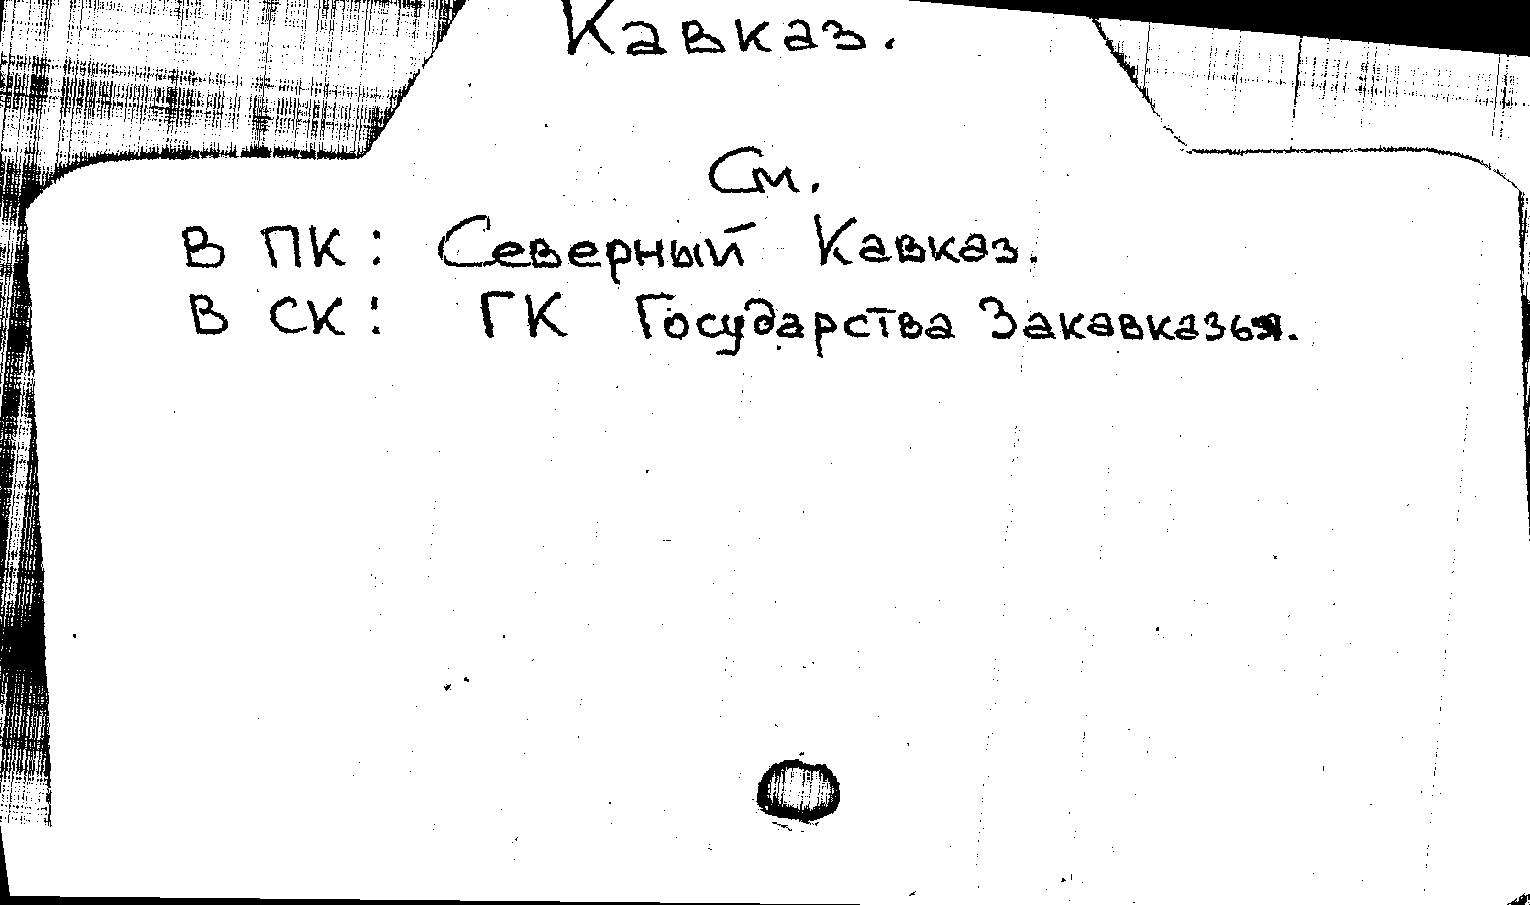 Кавказ.
См.
В ПК: Северный Кавказ.
В СК: ГК Государства Закавказья.